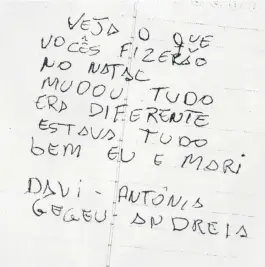 VEJA O QUE
VOCÊS FIZERÃO
NO NATAL
MUDOU TUDO
ERA DIFERENTE
ESTAVA TUDO
bEM EU E MARI
DAVI - ANTÔNIA
GEGEU - ANDREIA